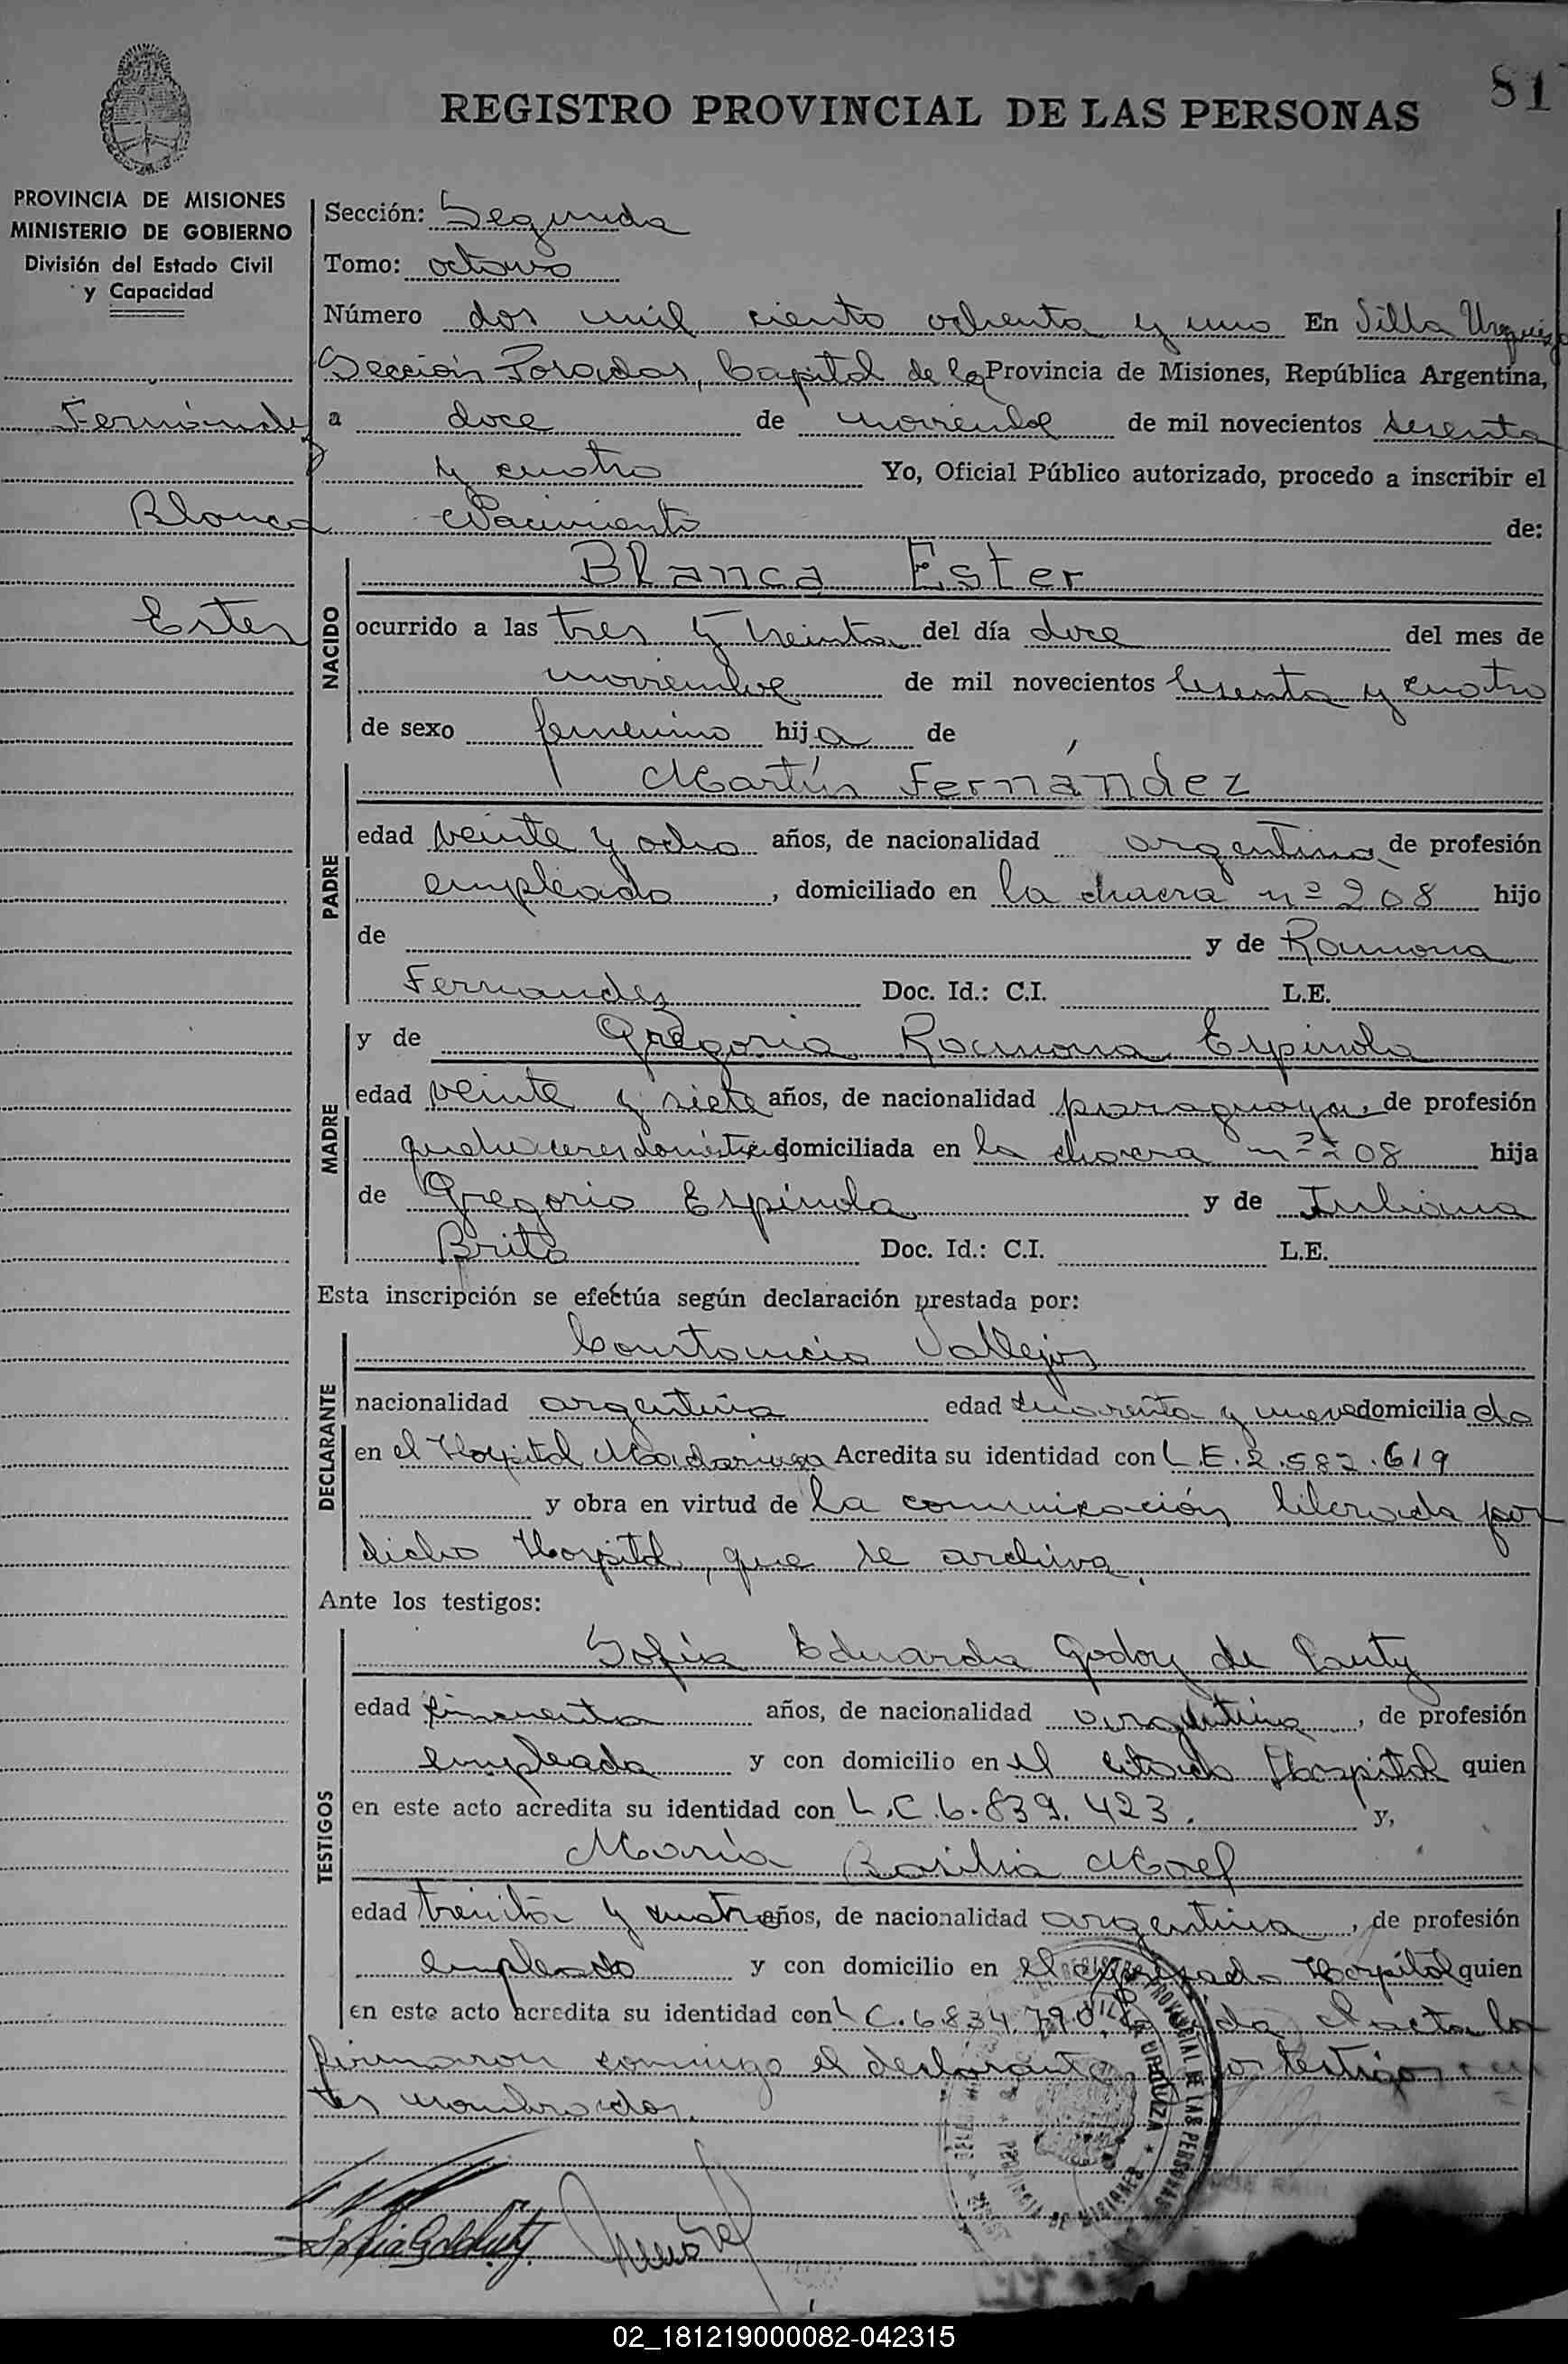 81
REGISTRO PROVINCIAL DE LAS PERSONAS
PROVINCIA DE MISIONES
MINISTERIO DE GOBIERNO
División del Estado Civil
y Capacidad
Fernández
Blanca
Ester
Sección: Segunda
Tomo: octavo
Número dos mil ciento ochenta y uno En Villa Urquiza
Sección Posadas, Capital de la Provincia de Misiones, República Argentina,
a doce de noviembre de mil novecientos sesenta
y cuatro Yo, Oficial Público autorizado, procedo a inscribir el
Nacimiento de:
NACIDO
Blanca Ester
ocurrido a las tres y treinta del día doce del mes de
noviembre de mil novecientos sesenta y cuatro
de sexo femenino hija de
PADRE
Martín Fernández
edad veinte y ocho años, de nacionalidad argentina de profesión
empleado, domiciliado en la chacra nº 208 hijo
de y de Ramona
Fernandez Doc. Id.: C.I. L.E.
MADRE
y de Gregoria Ramona Espínola
edad veinte y siete años, de nacionalidad paraguaya, de profesión
quehaceres domésticos domiciliada en la chacra nº 208 hija
de Gregorio Espínola y de Juliana
Brito Doc. Id.: C.I. L.E.
Esta inscripción se efectúa según declaración prestada por:
DECLARANTE
Constancio Vallejos
nacionalidad argentina edad cuarenta y nueve domiciliado
en el Hospital Madariaga Acredita su identidad con L.E. 2.582.619
y obra en virtud de la comunicación librada por
dicho Hospital, que se archiva.
Ante los testigos:
TESTIGOS
Sofía Eduarda Godoy de
edad cincuenta años, de nacionalidad argentina, de profesión
empleada y con domicilio en el citado Hospital quien
en este acto acredita su identidad con L.C. 6.839.423. y,
María Basilia
edad treinta y cuatro años, de nacionalidad argentina, de profesión
empleada y con domicilio en el expresado Hospital quien
en este acto acredita su identidad con L.C. 6.834.790. el acta la
firmaron conmigo el declarante testigos
nombrados.
REGISTRO PROVINCIAL DE LAS PERSONAS
VILLA URQUIZA
PROVINCIA DE MISIONES
02_181219000082-042315